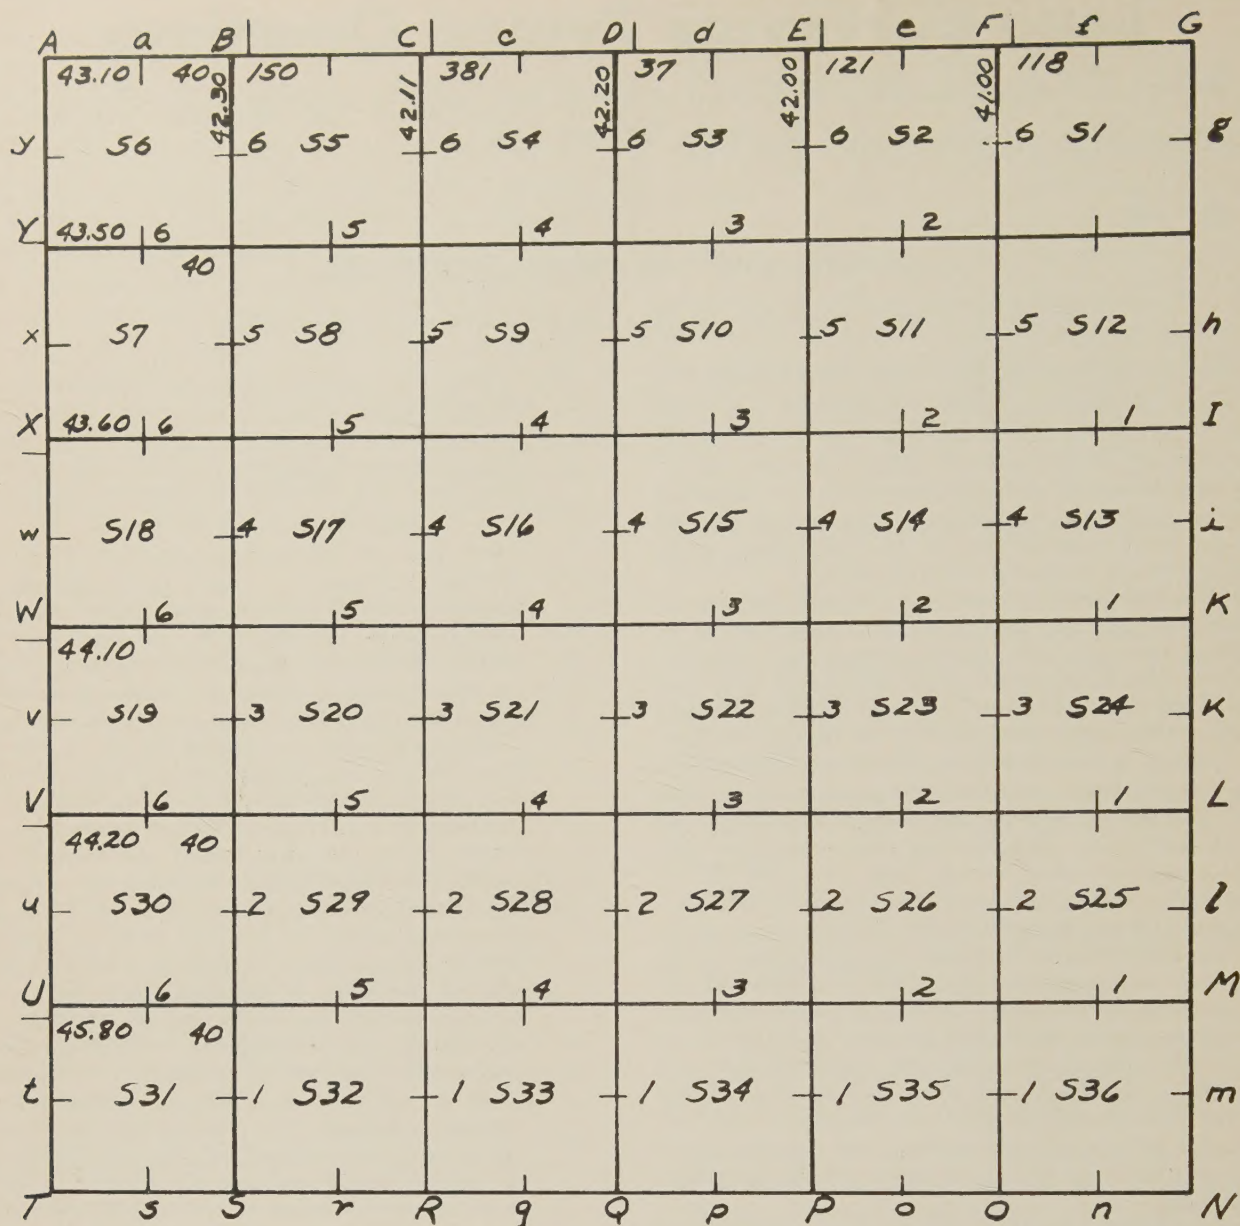 A a B C c D d E e F f G
43.10 40 150 381 37 121 118
42.30 42.11 42.20 42.00 41.00
y S6 6 S5 6 S4 6 S3 6 S2 6 S1 g
Y 43.50 6 5 4 3 2
40
x S7 5 S8 5 S9 5 S10 5 S11 5 S12 h
X 43.60 6 5 4 3 2 1 I
w S18 4 S17 4 S16 4 S15 4 S14 4 S13 i
W 6 5 4 3 2 1 K
44.10
v S19 3 S20 3 S21 3 S22 3 S23 3 S24 K
V 6 5 4 3 2 1 L
44.20 40
u S30 2 S29 2 S28 2 S27 2 S26 2 S25 l
U 6 5 4 3 2 1 M
45.80 40
t S31 1 S32 1 S33 1 S34 1 S35 1 S36 m
T s S r R q Q p P o O n N